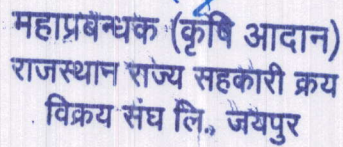 महाप्रबन्धक (कृषि आदान)
राजस्थान राज्य सहकारी क्रय
विक्रय संघ लि., जयपुर